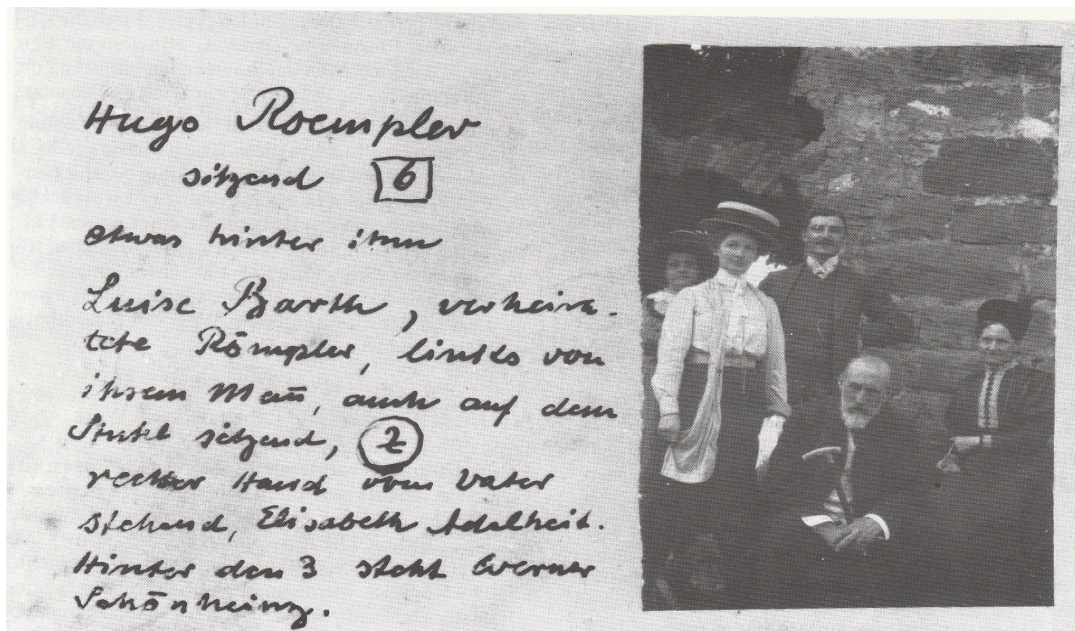 Hugo Roempler
sitzend 6
etwas hinter ihm
Luise Barth, verheira-
tete Römpler, links von
ihrem Mañ, auch auf dem
Stuhl sitzend, 2
rechter Hand vom Vater
stehend, Elisabeth Adalheit.
Hinter den 3 steht Werner
Schönheinz.